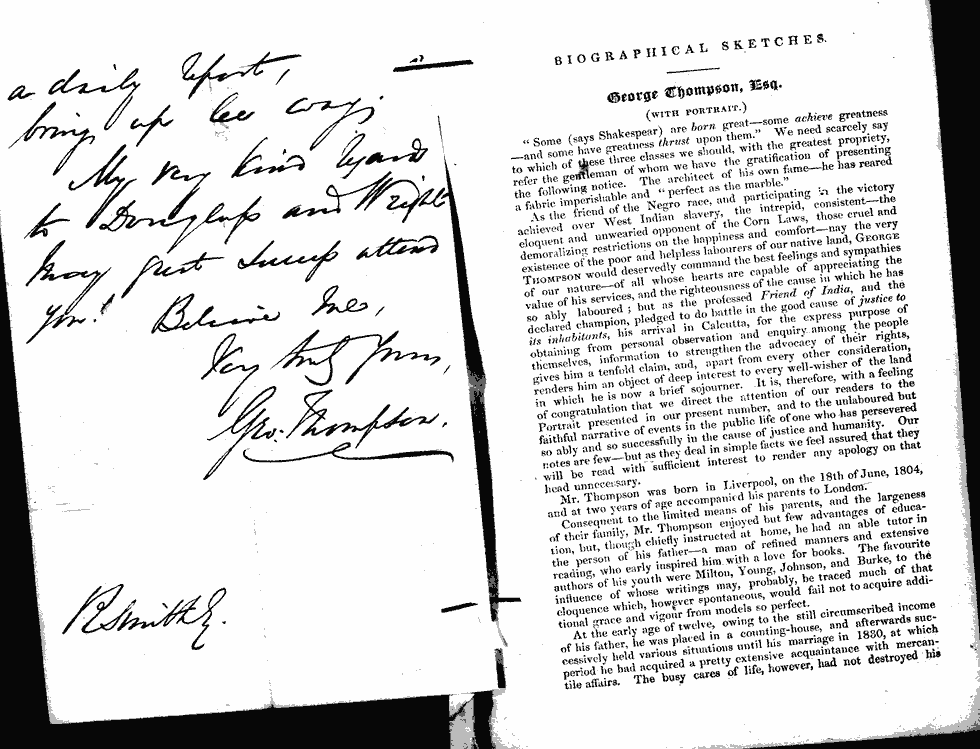 a daily report,
bring up lee way;
My very kind regards
to Douglass and Wright
may great success attend
you! Believe me,
Very truly yours,
Geo. Thompson.
R Smith Esq.
BIOGRAPHICAL SKETCHES.
George Thompson, Esq.
(WITH PORTRAIT.)
"Some (says Shakespear) are born great—some achieve greatness
—and some have greatness thrust upon them." We need scarcely say
to which of these three classes we should, with the greatest propriety,
refer the gentleman of whom we have the gratification of presenting
the following notice. The architect of his own fame—he has reared
a fabric imperishable and "perfect as the marble."
As the friend of the Negro race, and participating in the victory
achieved over West Indian slavery, the intrepid, consistent—the
eloquent and unwearied opponent of the Corn Laws, those cruel and
demoralizing restrictions on the happiness and comfort—nay the very
existence of the poor and helpless labourers of our native land, GEORGE
THOMPSON would deservedly command the best feelings and sympathies
of our nature—of all whose hearts are capable of appreciating the
value of his services, and the righteousness of the cause in which he has
so ably laboured; but as the professed Friend of India, and the
declared champion, pledged to do battle in the good cause of justice to
its inhabitants, his arrival in Calcutta, for the express purpose of
obtaining from personal observation and enquiry among the people
themselves, information to strengthen the advocacy of their rights,
gives him a tenfold claim, and, apart from every other consideration,
renders him an object of deep interest to every well-wisher of the land
in which he is now a brief sojourner. It is, therefore, with a feeling
of congratulation that we direct the attention of our readers to the
Portrait presented in our present number, and to the unlaboured but
faithful narrative of events in the public life of one who has persevered
so ably and so successfully in the cause of justice and humanity. Our
notes are few—but as they deal in simple facts we feel assured that they
will be read with sufficient interest to render any apology on that
head unnecessary.
Mr. Thompson was born in Liverpool, on the 18th of June, 1804,
and at two years of age accompanied his parents to London.
Consequent to the limited means of his parents, and the largeness
of their family, Mr. Thompson enjoyed but few advantages of educa-
tion, but, though chiefly instructed at home, he had an able tutor in
the person of his father—a man of refined manners and extensive
reading, who early inspired him with a love for books. The favourite
authors of his youth were Milton, Young, Johnson, and Burke, to the
influence of whose writings may, probably, be traced much of that
eloquence which, however spontaneous, would fail not to acquire addi-
tional grace and vigour from models so perfect.
At the early age of twelve, owing to the still circumscribed income
of his father, he was placed in a counting-house, and afterwards suc-
cessively held various situations until his marriage in 1830, at which
period he had acquired a pretty extensive acquaintance with mercan-
tile affairs. The busy cares of life, however, had not destroyed his